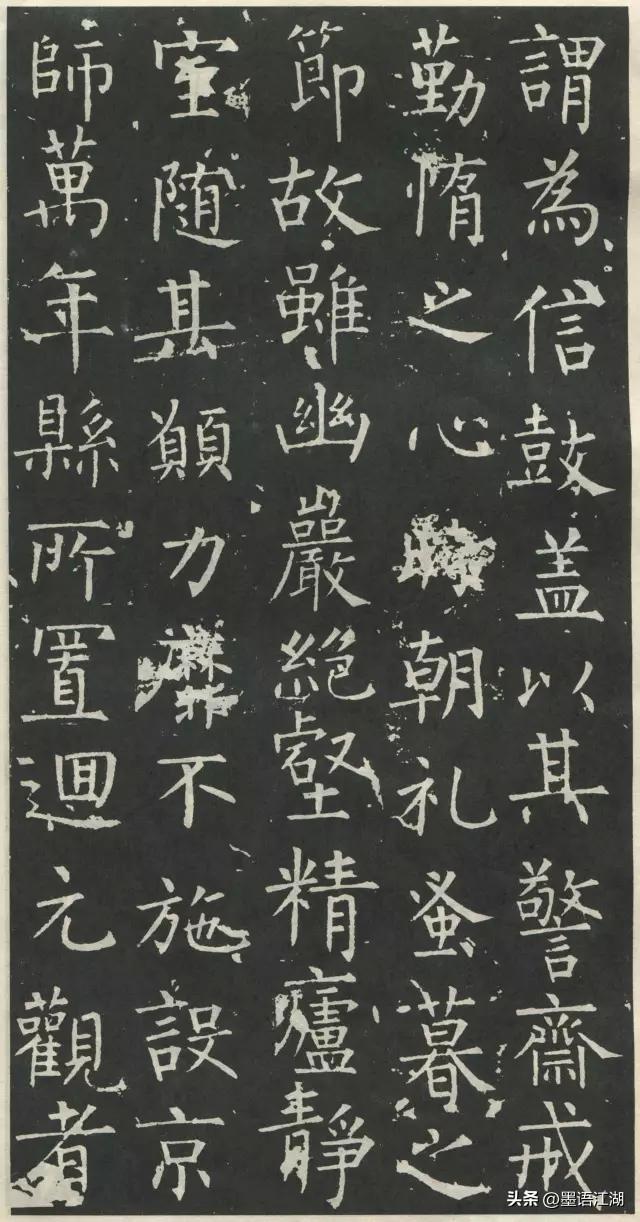 謂為信鼓盖以其警齋戒
勤惰之心時朝礼蚤暮之
節故雖幽巖絶壑精廬靜
室随其願力靡不施設京
師萬年縣所置迴元觀者
头条 @墨语江湖